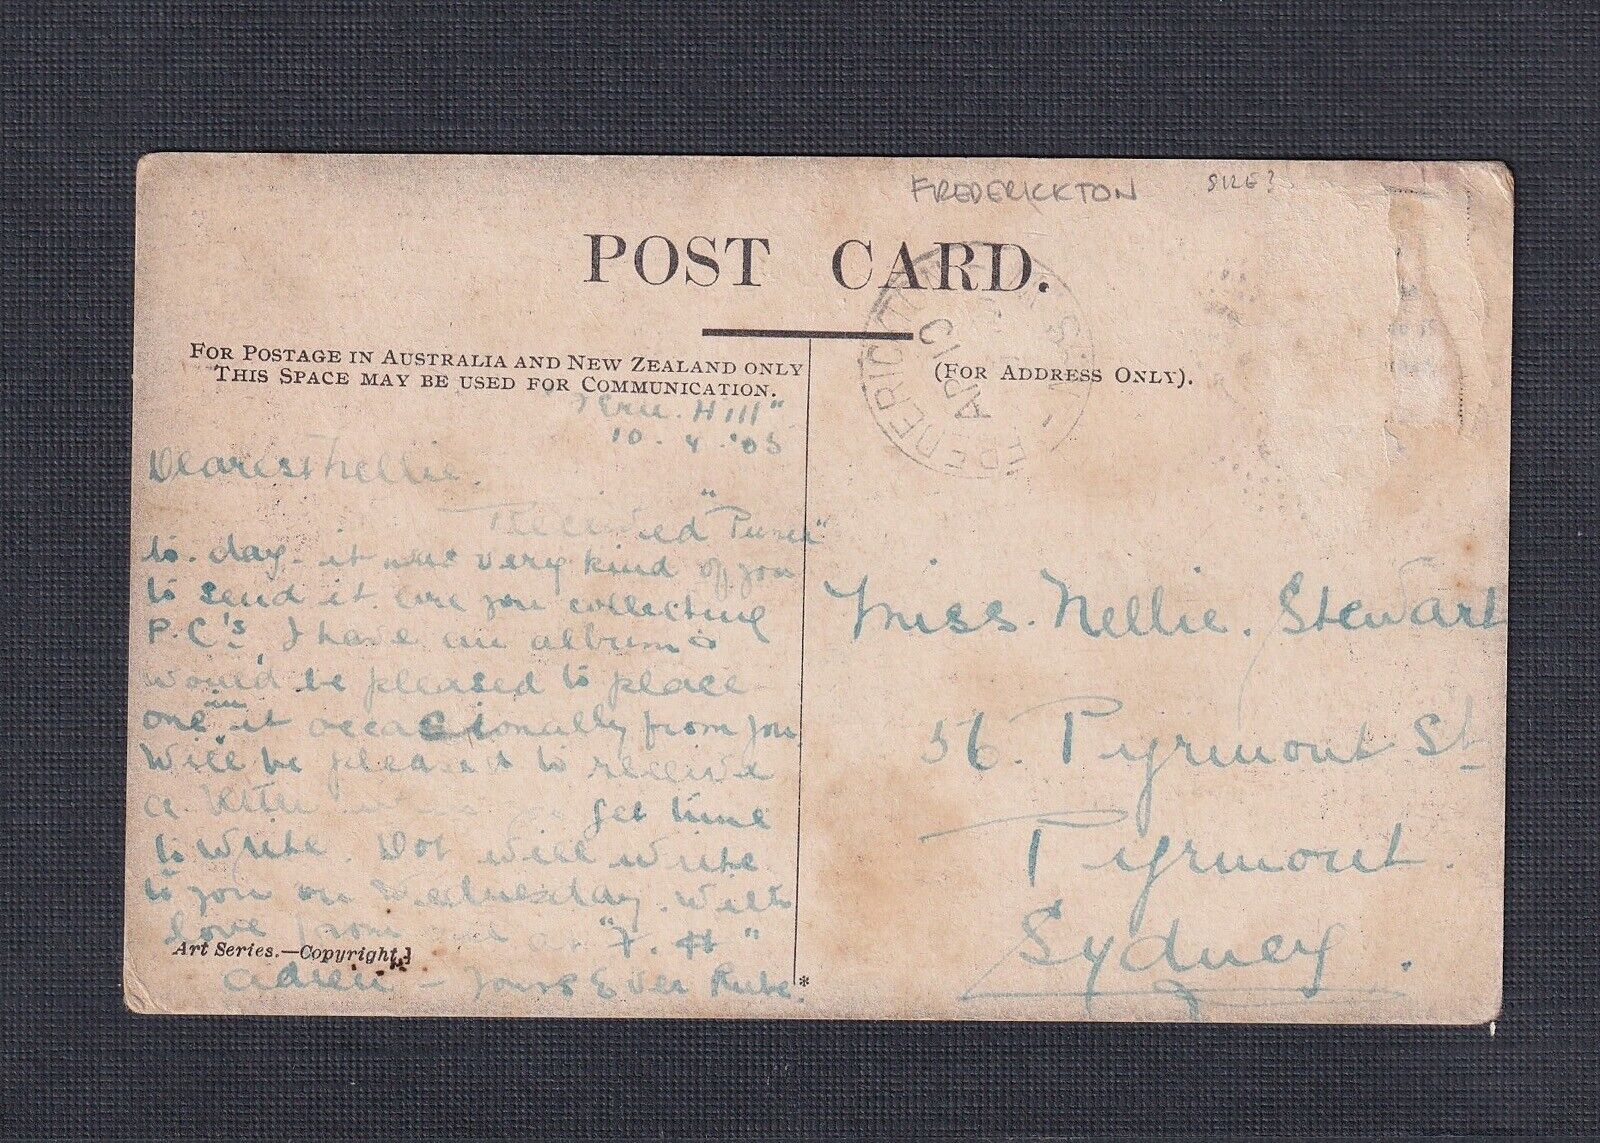 FREDERICKTON SIZE?
POST CARD.
FREDERICKTON N.S.W
AP 10
FOR POSTAGE IN AUSTRALIA AND NEW ZEALAND ONLY
THIS SPACE MAY BE USED FOR COMMUNICATION.
(FOR ADDRESS ONLY).
Hill"
10.4.'05
Dearest Nellie.
Received "Punch"
to.day - it was very kind of you
to send it. are you collecting
P.C's, I have an album &
would be pleased to place
one in it occasionally from you
Will be pleased to receive
a letter when you get time
to write. Dot will write
to you on Wednesday. With
love from all at "F. H"
Adieu - Yours Ever Rube.
Art Series.—Copyright.
*
Miss. Nellie. Stewart
56. Pyrmont St
Pyrmont.
Sydney.